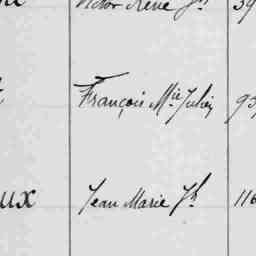 Victor René Jh 39
François Mie Julien 93
ux Jean Marie Jh 116